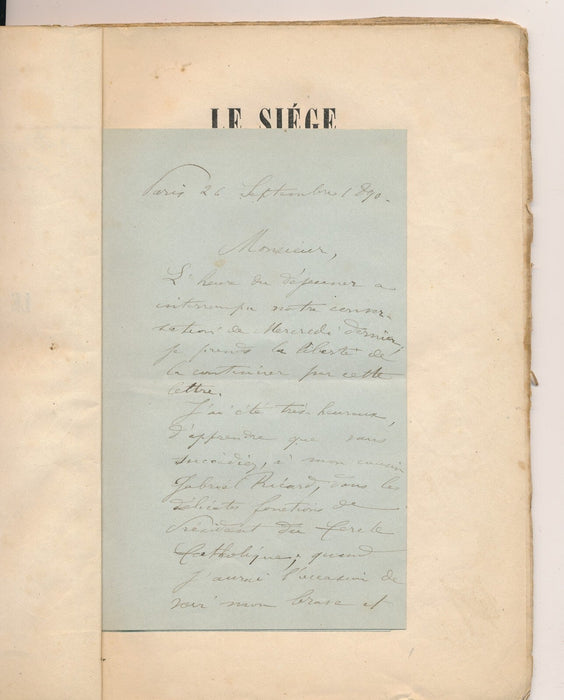 LE SIÉGE
Paris 26 Septembre 1890.
Monsieur,
L'heure du déjeuner a
interrompu notre conver-
sation de Mercredi dernier,
je prends la liberté de
la continuer par cette
lettre.
J'ai été très heureux,
d'apprendre que vous
succédiez, à mon cousin
Gabriel Ricard, dans les
délicates fonctions de
Président du Cercle
Catholique; quand
j'aurai l'occasion de
voir mon brave et